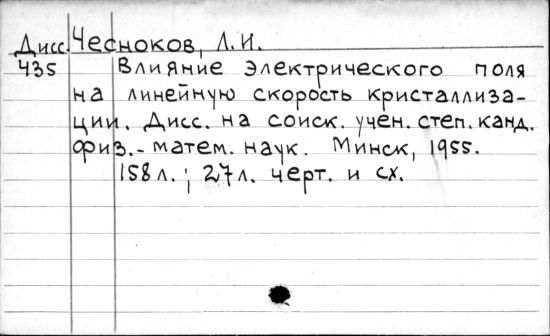 Дисс. Чесноков, Л.И.
435 Влияние электрического поля
на линейную скорость кристаллиза-
ции. Дисс. на соиск. учен. степ. канд.
физ.- матем. наук. Минск, 1955.
158 л.; 27 л. черт. и сх.